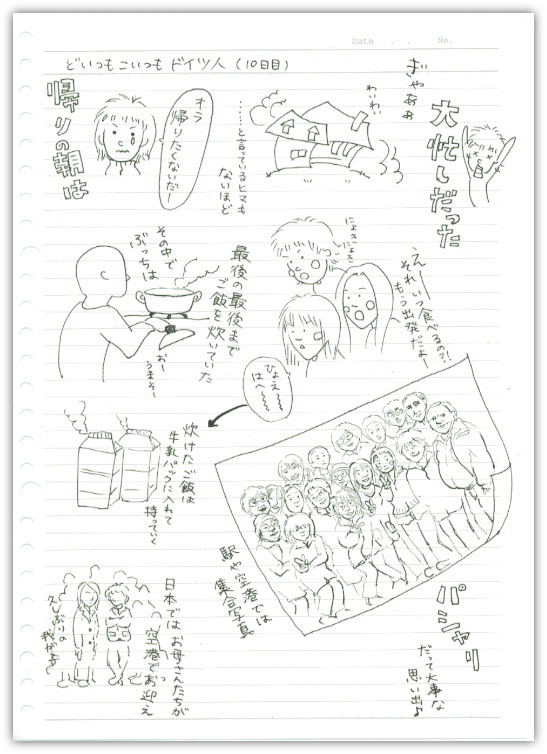 Date . . No.
どいつもこいつもドイツ人(10日目)
帰りの朝は
オラ
帰りたくないだー
……と言っているヒマも
ないほど
わいわい
ぎゃあぁ
大忙しだった
最後の最後まで
ご飯を炊いていた
その中で
ぶっちは
おー
うまそー
にょきにょき
えーいつ食べるの?!
それ
もう出発だよー
ひょえ〜〜
は〜〜
炊けたご飯は
牛乳パックに入れて
持っていく
駅や空港では
集合写真
パシャリ
だって大事な
思い出♪
日本ではお母さんたちが
空港でお迎え
久しぶりの
我が子〜